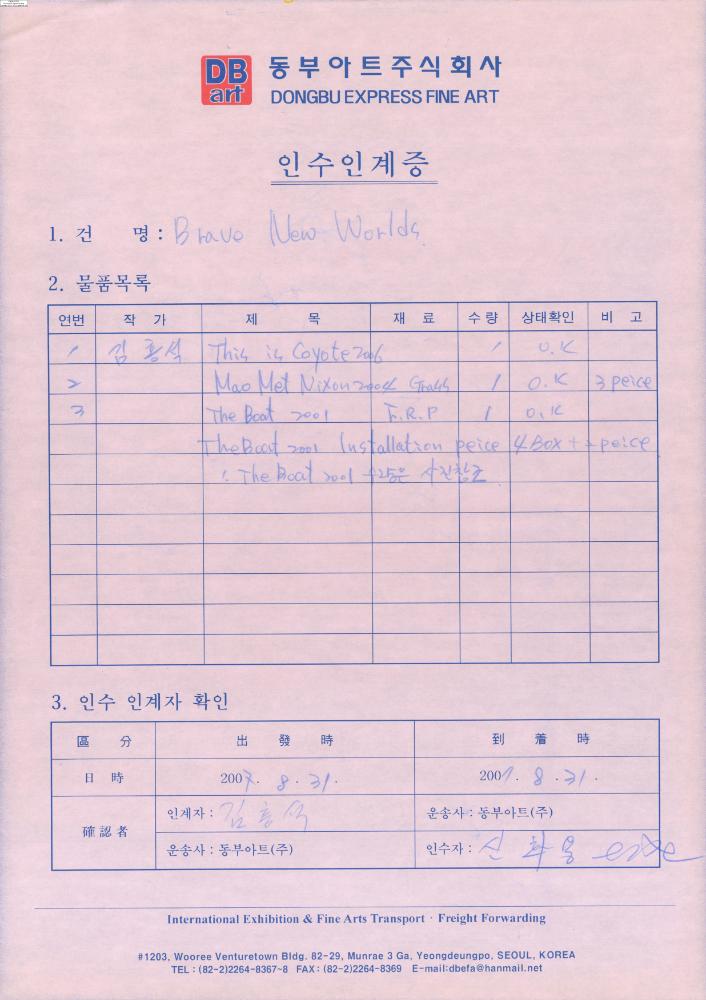 DB art 동부아트주식회사
DONGBU EXPRESS FINE ART
인수인계증
1. 건 명 : Brave New Worlds
2. 물품목록
연번 작 가 제 목 재 료 수 량 상태확인 비 고
1 김홍석 This is Coyote 2006 1 O.K
2 Mao Met Nixon 2004 1 O.K 3 peice
3 The Boat 2001 F.R.P 1 O.K
The Boat 2001 Installation peice 4 Box + peice
The Boat 2001 수량은 사진참조
3. 인수 인계자 확인
區 分 出 發 時 到 着 時
日 時 2007. 8. 31. 2007. 8. 31.
確認者 인계자 : 김홍석 운송사 : 동부아트(주)
운송사 : 동부아트(주) 인수자 : 신
International Exhibition & Fine Arts Transport · Freight Forwarding
#1203, Wooree Venturetown Bldg. 82-29, Munrae 3 Ga, Yeongdeungpo, SEOUL, KOREA
TEL : (82-2)2264-8367~8 FAX : (82-2)2264-8369 E-mail:dbefa@hanmail.net